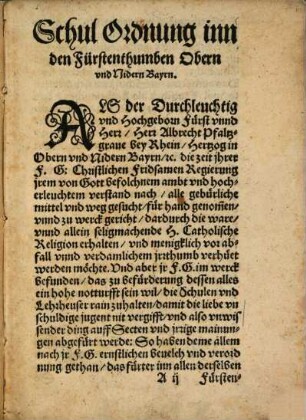 Schul Ordnung inn
den Fürstenthumben Obern
vnd Nidern Bayrn.
ALS der Durchleuchtig
vnd Hochgeborn Fürst vnnd
Herr / Herr Albrecht Pfaltz-
graue bey Rhein / Hertzog in
Obern vnd Nidern Bayrn / ꝛc. die zeit jhrer
F. G: Christlichen Fridsamen Regierung
jrem von Gott befolchnem ambt vnd hoch-
erleuchtem verstand nach / alle gebürliche
mittel vnd weg gesucht / für hand genom̃en /
vnnd zu werck gericht / dardurch die ware /
vnnd allein seligmachende H. Catholische
Religion erhalten / vnd menigklich vor ab-
fall vnnd verdamlichem jrꝛthumb verhüet
werden möchte. Vnd aber jr F.G. im werck
befunden / das zu befürderung dessen alles
ein hohe notturfft sein wil / die Schulen vnd
Lehrheuser rain zuhalten / damit die liebe vn
schuldige jugent nit vergifft / vnd also vnwis
sender ding auff Secten vnd jrꝛige mainun-
gen abgefürt werde: So haben deme allem
nach jr F.G. ernstlichen beuelch vnd verord
nung gethan / das fürter inn allen derselben
A ij Fürsten-